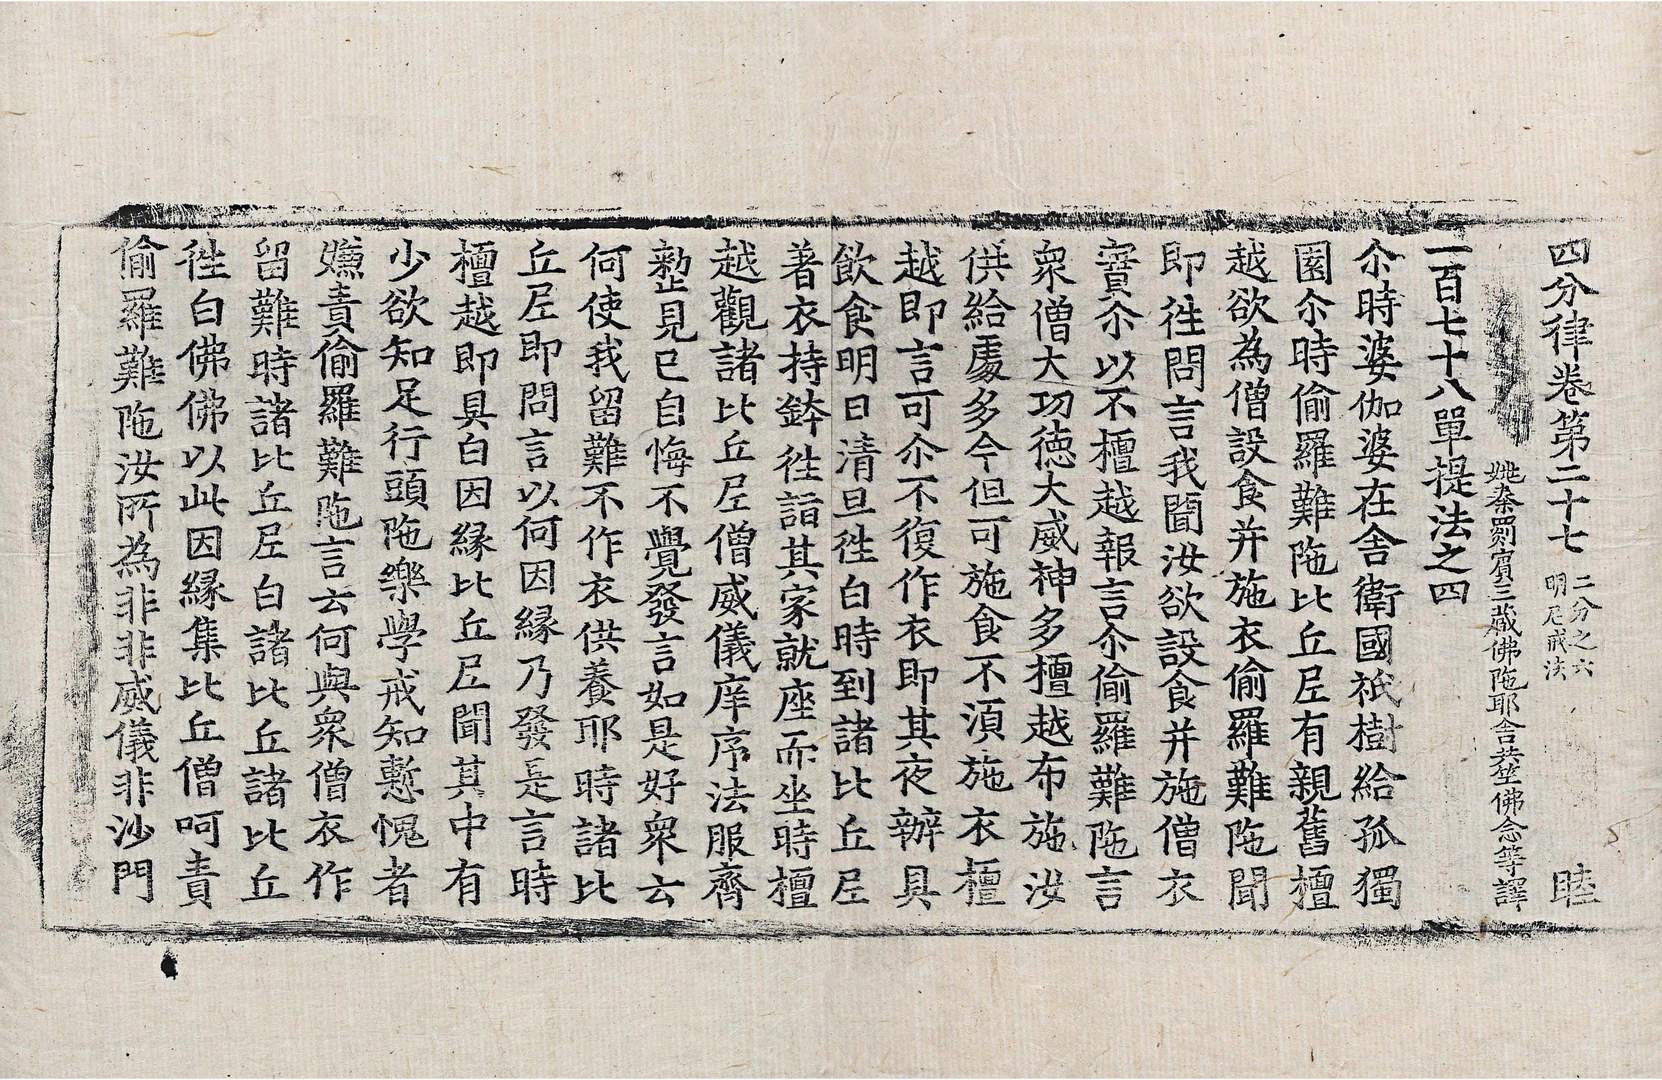 四分律卷第二十七 二分之六 明尼戒法 睦
姚秦罽賓三藏佛陁耶舍共竺佛念等譯
一百七十八單提法之四
尒時婆伽婆在舍衛國祇樹給孤獨
園尒時偷羅難陁比丘尼有親舊檀
越欲為僧設食并施衣偷羅難陁聞
即往問言我聞汝欲設食并施僧衣
實尒以不檀越報言尒偷羅難陁言
衆僧大功德大威神多檀越布施汝
供給處多今但可施食不湏施衣檀
越即言可尒不復作衣即其夜辦具
飲食明日清旦往白時到諸比丘尼
著衣持鉢往詣其家就座而坐時檀
越觀諸比丘尼僧威儀庠序法服齊
整見已自悔不覺發言如是好衆云
何使我留難不作衣供養耶時諸比
丘尼即問言以何因緣乃發是言時
檀越即具白因緣比丘尼聞其中有
少欲知足行頭陁樂學戒知慙愧者
嫌責偷羅難陁言云何與衆僧衣作
留難時諸比丘尼白諸比丘諸比丘
往白佛佛以此因緣集比丘僧呵責
偷羅難陁汝所為非非威儀非沙門